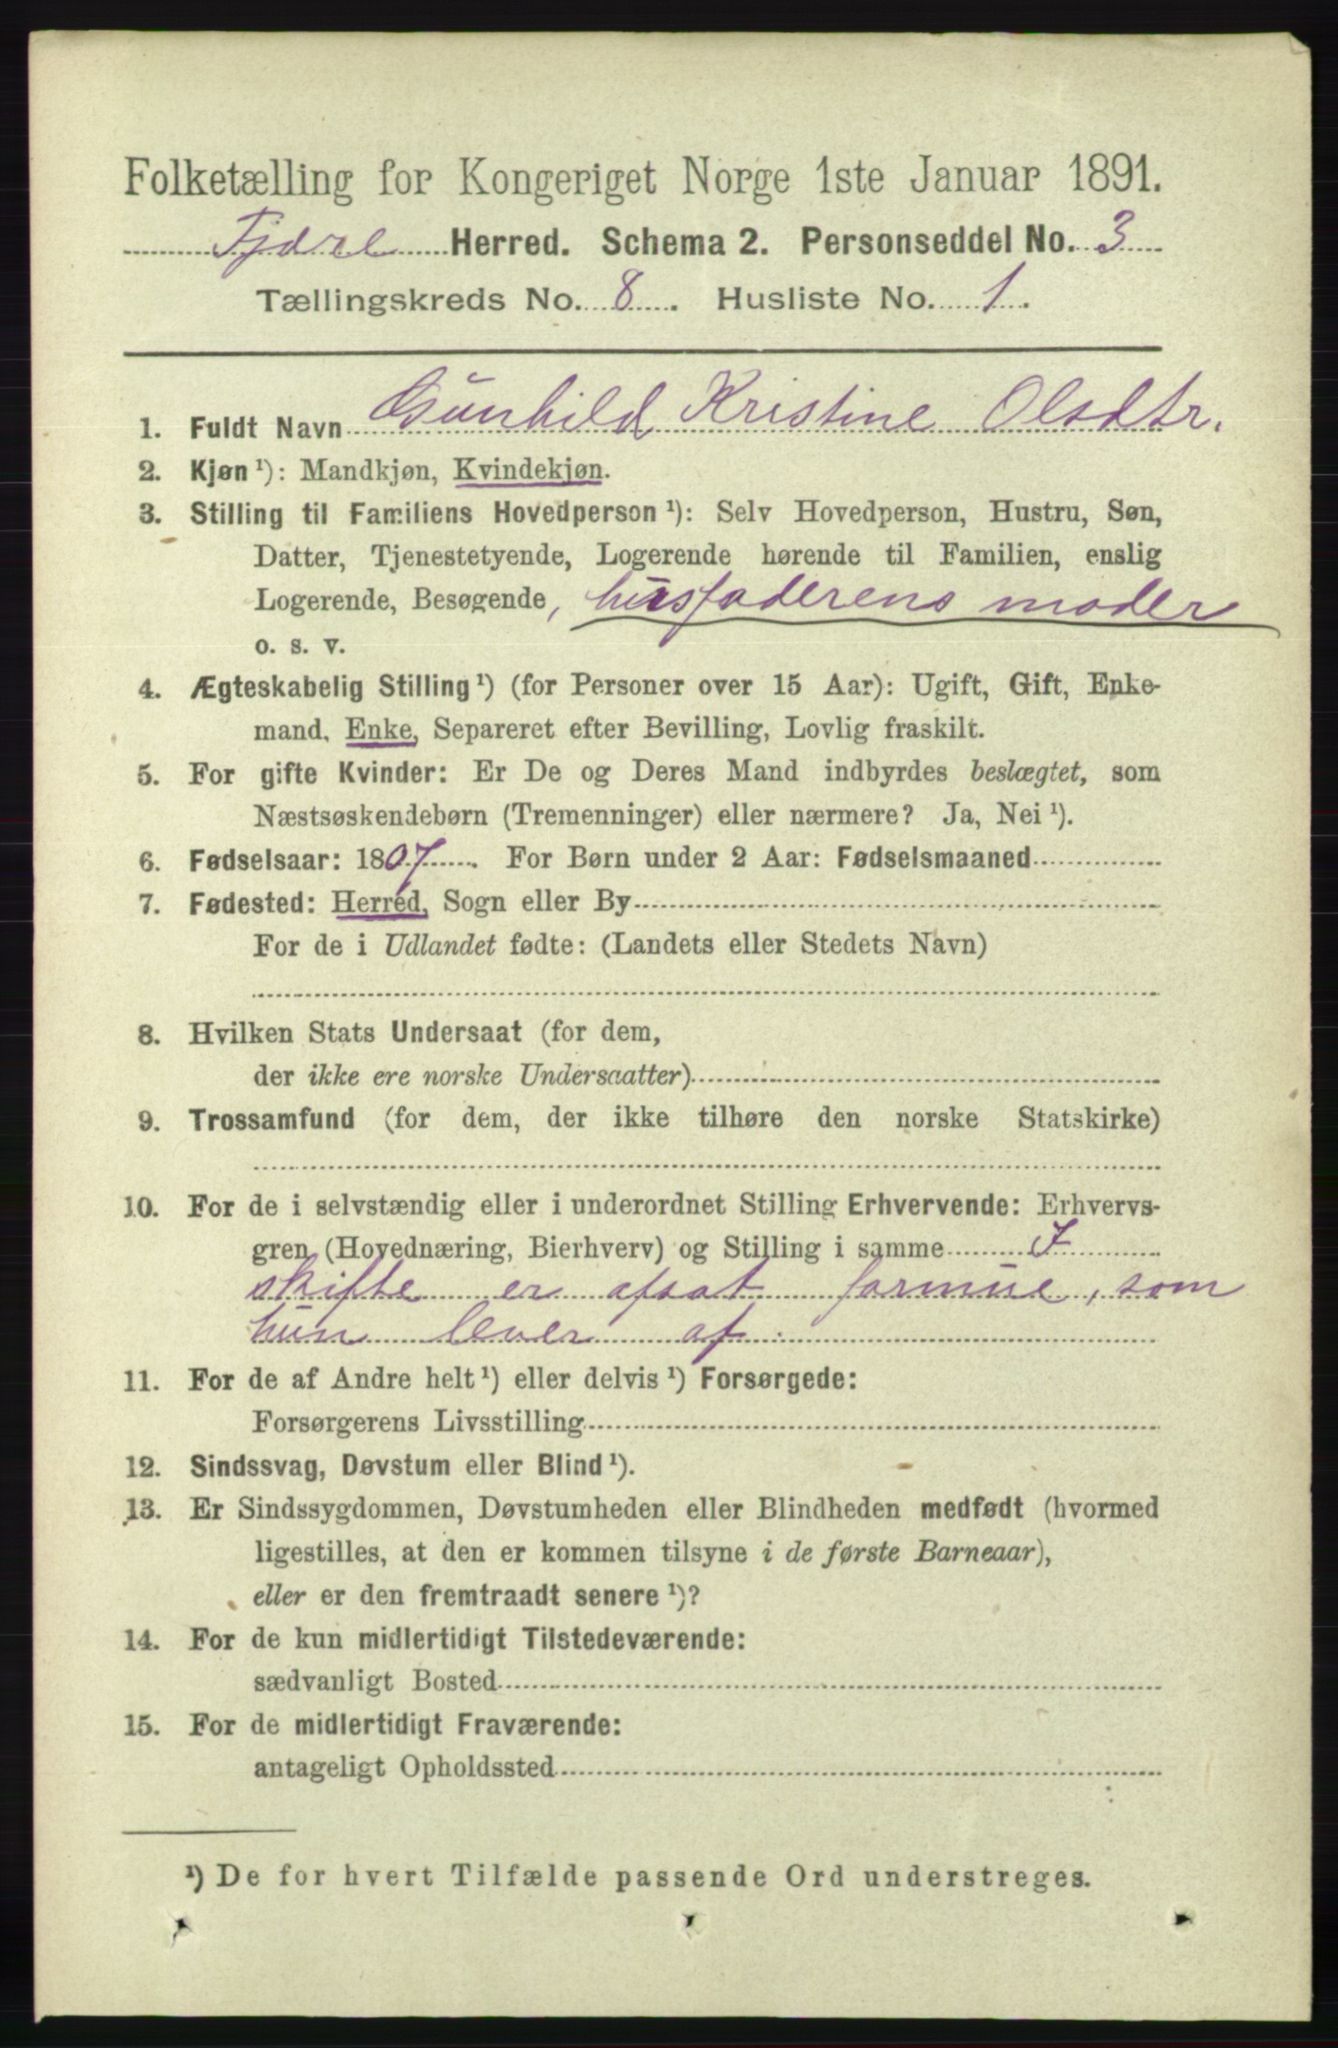 Folketælling for Kongeriget Norge 1ste Januar 1891.
Fjære Herred. Schema 2. Personseddel No. 3
Tællingskreds No. 8. Husliste No. 1.
1. Fuldt Navn Gunhild Kristine Olsdtr.
2. Kjøn ¹): Mandkjøn, Kvindekjøn.
3. Stilling til Familiens Hovedperson ¹): Selv Hovedperson, Hustru, Søn,
Datter, Tjenestetyende, Logerende hørende til Familien, enslig
Logerende, Besøgende, husfaderens moder
o. s. v.
4. Ægteskabelig Stilling ¹) (for Personer over 15 Aar): Ugift, Gift, Enke-
mand, Enke, Separeret efter Bevilling, Lovlig fraskilt.
5. For gifte Kvinder: Er De og Deres Mand indbyrdes beslægtet, som
Næstsøskendebørn (Tremenninger) eller nærmere? Ja, Nei ¹).
6. Fødselsaar: 1807. For Børn under 2 Aar: Fødselsmaaned
7. Fødested: Herred, Sogn eller By
For de i Udlandet fødte: (Landets eller Stedets Navn)
8. Hvilken Stats Undersaat (for dem,
der ikke ere norske Undersaatter)
9. Trossamfund (for dem, der ikke tilhøre den norske Statskirke)
10. For de i selvstændig eller i underordnet Stilling Erhvervende: Erhvervs-
gren (Hovednæring, Bierhverv) og Stilling i samme I
skifte er afsat formue, som
hun lever af.
11. For de af Andre helt ¹) eller delvis ¹) Forsørgede:
Forsørgerens Livsstilling
12. Sindssvag, Døvstum eller Blind ¹).
13. Er Sindssygdommen, Døvstumheden eller Blindheden medfødt (hvormed
ligestilles, at den er kommen tilsyne i de første Barneaar),
eller er den fremtraadt senere ¹)?
14. For de kun midlertidigt Tilstedeværende:
sædvanligt Bosted
15. For de midlertidigt Fraværende:
antageligt Opholdssted
¹) De for hvert Tilfælde passende Ord understreges.